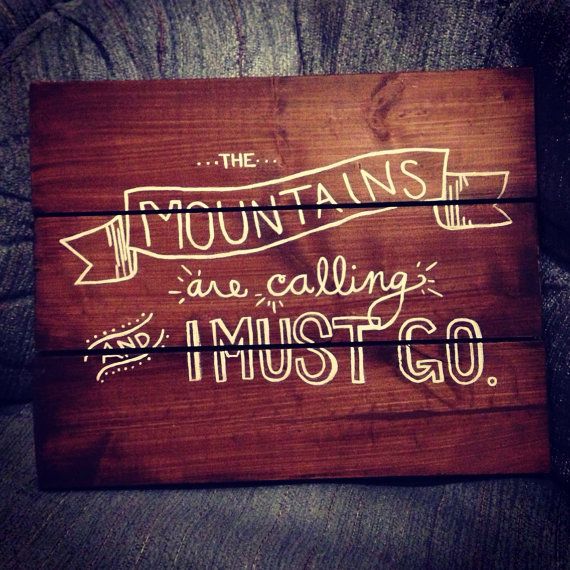 ...THE...
MOUNTAINS
are calling
AND I MUST GO.